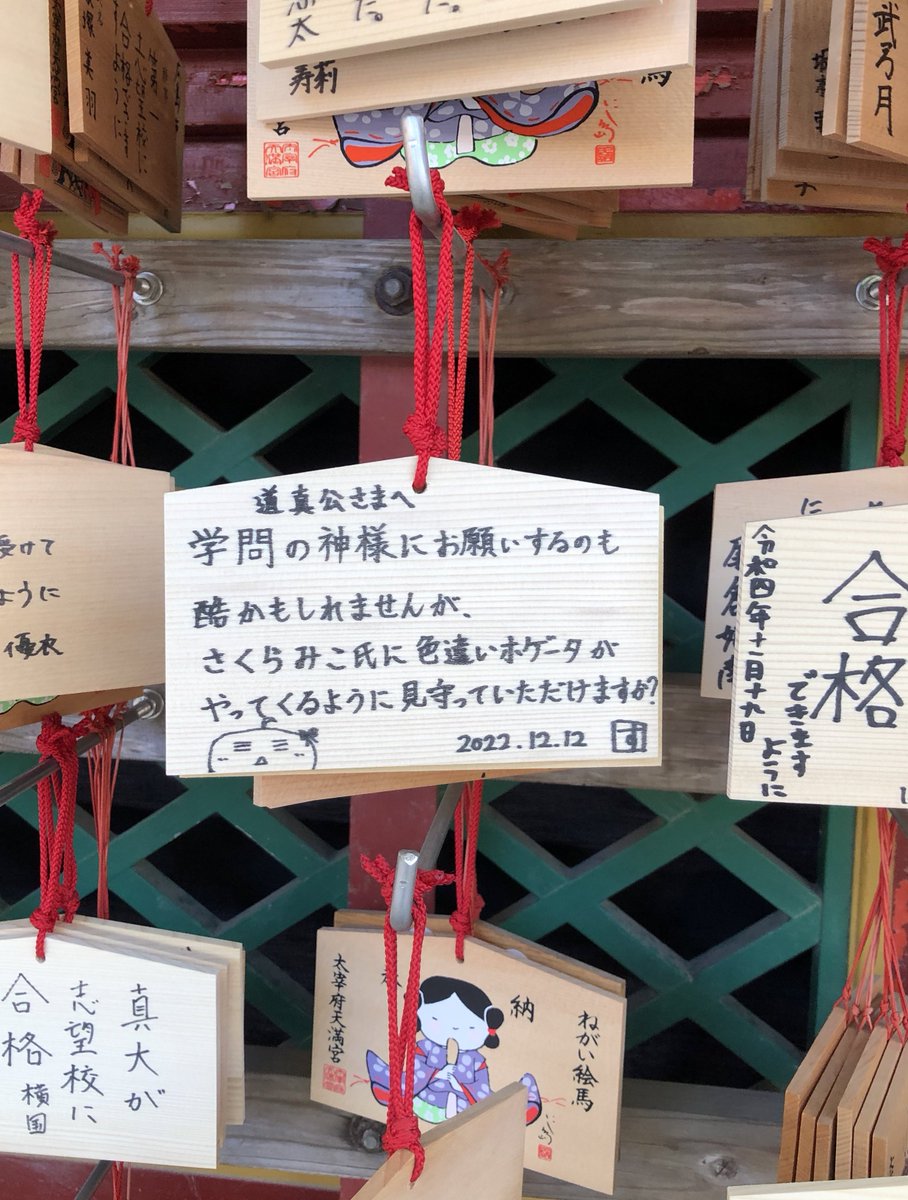 道真公さまへ
学問の神様にお願いするのも
酷かもしれませんが、
さくらみこ氏に色違いホゲータが
やってくるように見守っていただけますか?
2022.12.12
す
太
た。
た。
寿莉
武弓月
美羽
受けて
ように
優衣
令和四年十二月十九日
合格
できます
ように
に
真大が
志望校に
合格
横国
太宰府天満宮
納
ねがい絵馬